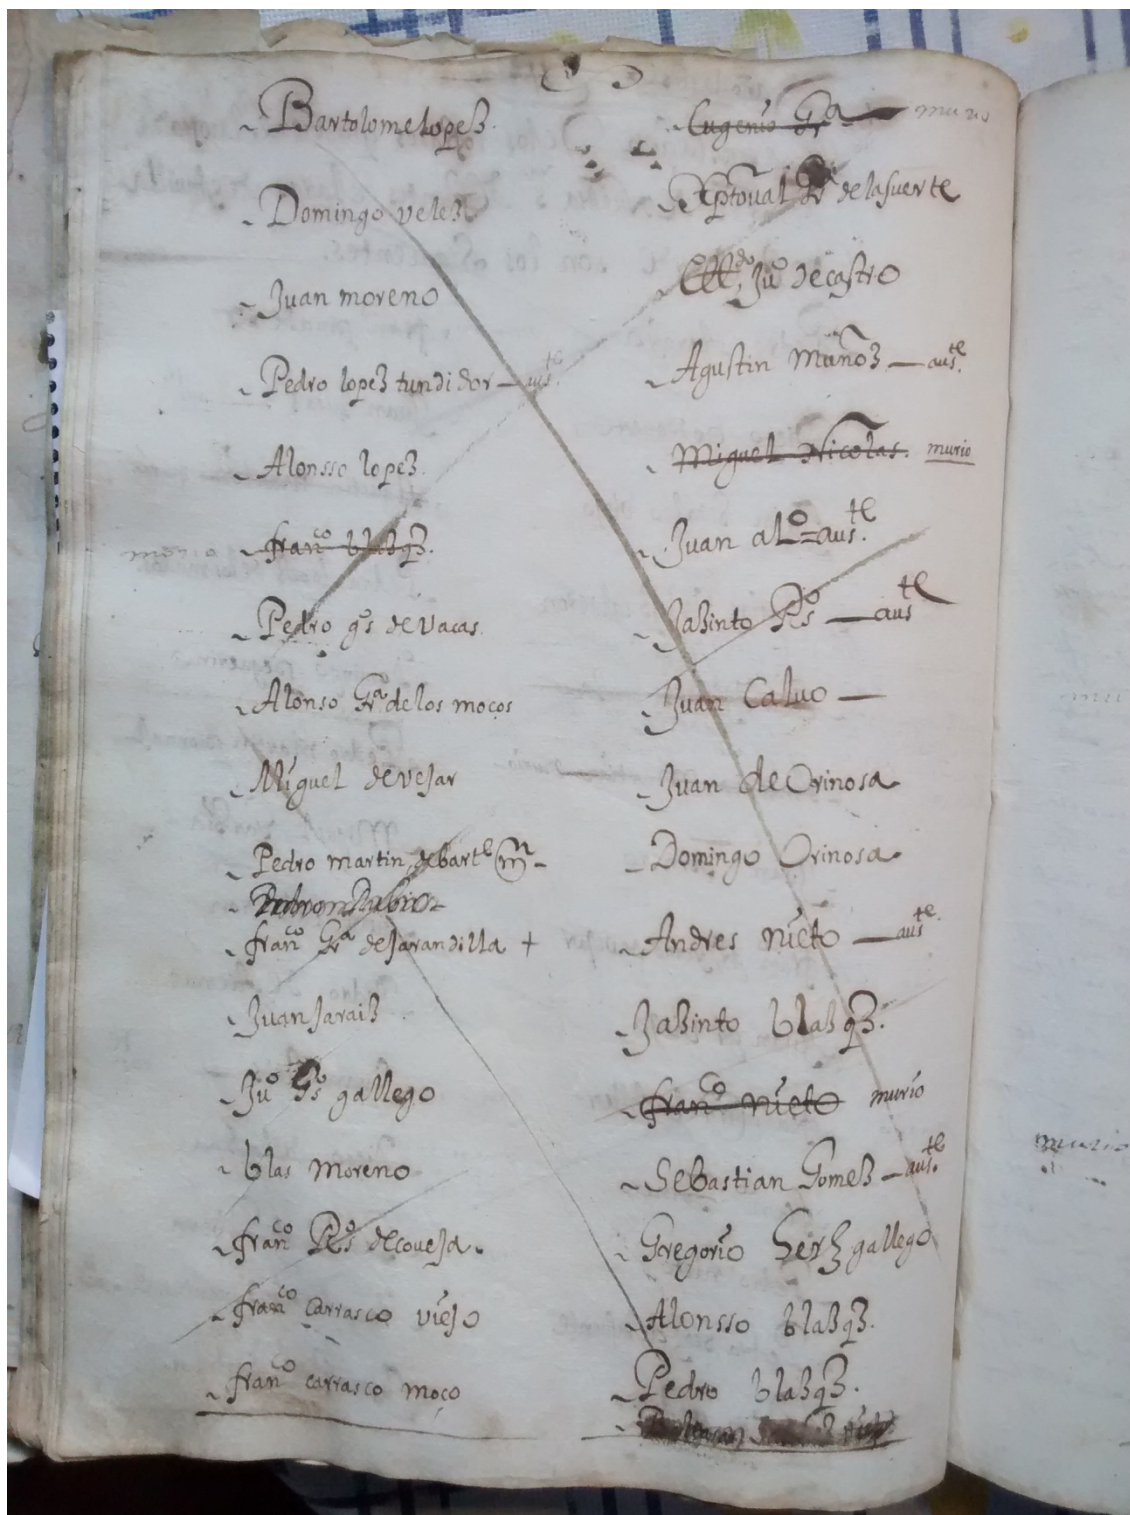 Bartolome lopez.
Domingo velez
Juan moreno
Pedro lopez tundidor — aus.te
Alonsso lopez.
murio franco blazqz.
Pedro gs de vacas.
Alonso Gra de los moços
Miguel de vejar
Pedro martin, de barte mn
franco Gra de Jarandilla +
Juan Jaraiz
Juo Gs gallego
blas moreno
franco Rs de coveja.
franco Carrasco viejo
franco carrasco moço
Eugenio Gra — murio
Xptoval Gra de la fuerte
Juo de castro
Agustin muñoz — aus.te
Miguel Nicolas. murio
Juan alo = aus.te
Jazinto Rs — auste
Juan Calvo —
Juan de Orinosa
Domingo Orinosa
Andres nieto — auste
Jazinto blazqz.
franco nieto murio
Sebastian Gomez — aus.te
Gregorio Serz gallego
Alonsso blazqz.
Pedro blazqz.
murio